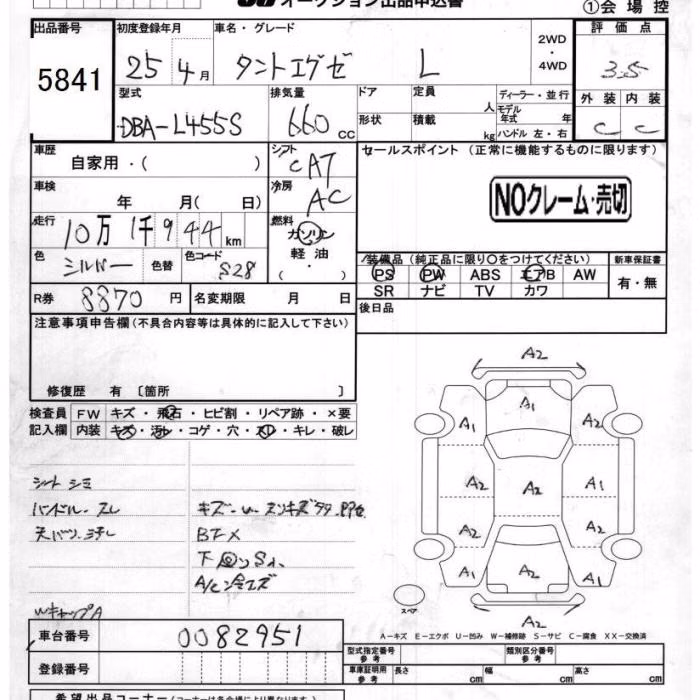 オークション出品申込書
①会場控
出品番号 初度登録年月 車名・グレード 2WD・4WD 評価点
5841 25年 4月 タントエグゼ L 3.5
型式 排気量 ドア 定員 人 ディーラー・並行 外装 内装
DBA-L455S 660cc 形状 積載 kg モデル年式 年 ハンドル 左・右 C C
車歴 自家用・( ) シフト CAT セールスポイント (正常に機能するものに限ります)
車検 年 月( 日) 冷房 AC NOクレーム・売切
走行 10万1千944km 燃料 ガソリン 軽油 ・
色 シルバー 色替 色コード S28
装備品 (純正品に限り○をつけてください) 新車保証書
PS PW ABS エアB AW 有・無
SR ナビ TV カワ
R券 8870円 名変期限 月 日 後日品
注意事項申告欄(不具合内容等は具体的に記入して下さい)
修復歴 有 〔箇所 〕
検査員記入欄 FW キズ・飛石・ヒビ割・リペア跡・×要
内装 キズ・汚れ・コゲ・穴・スレ・キレ・破レ
シートシミ
ハンドル スレ
天バリ ヨゴレ
BTX
下回りS1.
WキャップA
A2
A1
A1 A2
A2 A2 A1
A2 A2
A1 A2 A1
A2
スペア
A-キズ E-エクボ U-凹み W-補修跡 S-サビ C-腐食 XX-交換済
車台番号 0082951 型式指定番号 参考 類別区分番号 参考
登録番号 車庫証明用 参考 長さ cm 幅 cm 高さ cm
希望出品コーナー(コーナーは各会場により異なります)